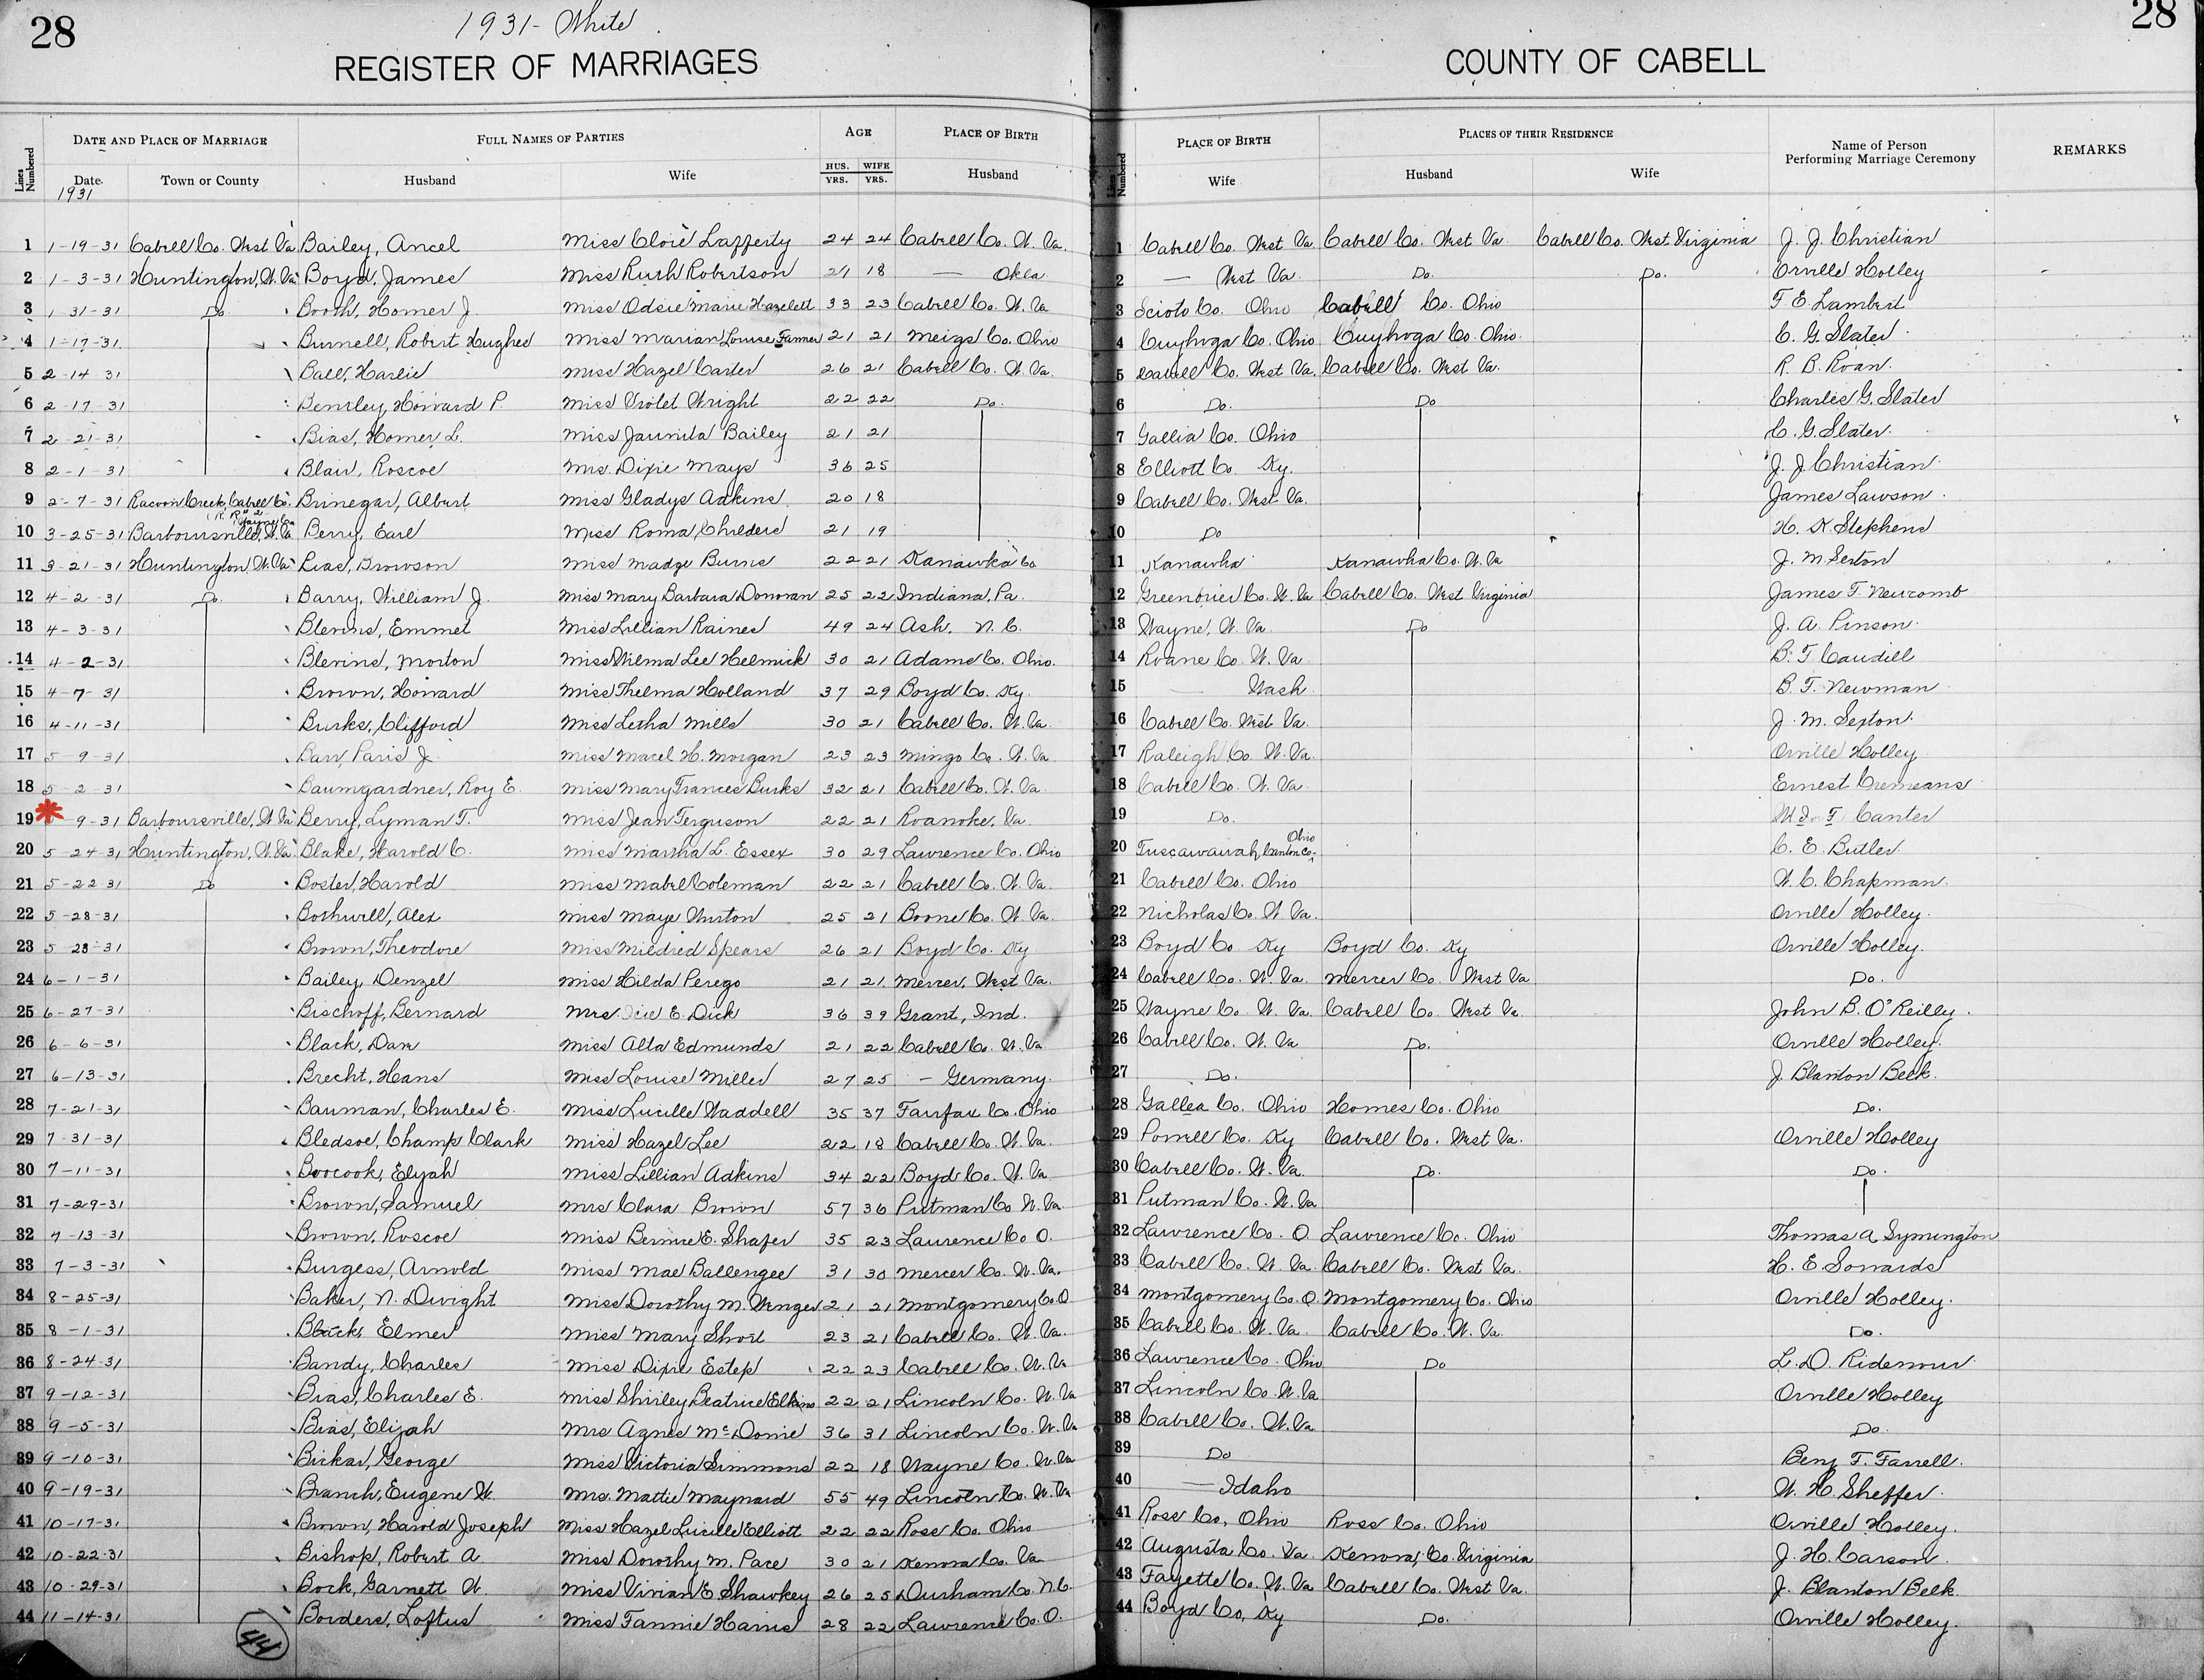 28
1931- White
REGISTER OF MARRIAGES
COUNTY OF CABELL
28
DATE AND PLACE OF MARRIAGE FULL NAMES OF PARTIES AGE PLACE OF BIRTH PLACE OF BIRTH PLACES OF THEIR RESIDENCE Name of Person Performing Marriage Ceremony REMARKS
Lines Numbered Date 1931 Town or County Husband Wife HUS. YRS. WIFE YRS. Husband Lines Numbered Wife Husband Wife
1 1-19-31 Cabell Co. West Va. Bailey, Ancel Miss Cloie Lafferty 24 24 Cabell Co. W. Va. 1 Cabell Co. West Va Cabell Co. West Va Cabell Co. West Virginia J. J. Christian
2 1-3-31 Huntington, W. Va Boyd, James Miss Ruth Robertson 21 18 — Okla 2 — West Va. Do. Do. Orville Holley
3 1 31-31 Do. Booth, Homer J. Miss Odsie Marie Hazelett 33 23 Cabell Co. W. Va 3 Scioto Co. Ohio Cabell Co. Ohio T. E. Lambert
4 1-17-31 Burnell, Robert Hughes Miss Marian Louise Farmer 21 21 Meigs Co. Ohio 4 Cuyhoga Co. Ohio Cuyhoga Co. Ohio. C. G. Slater
5 2-14 31 Ball, Harlie Miss Hazel Carter 26 21 Cabell Co. W. Va. 5 Cabell Co. West Va. Cabell Co. West Va. R. B. Roan.
6 2-17-31 Bentley, Howard P. Miss Violet Wright 22 22 Do. 6 Do. Do Charles G. Slater
7 2-21-31 Bias, Homer L. Miss Jaunita Bailey 21 21 7 Gallia Co. Ohio C. G. Slater.
8 2-1-31 Blair, Roscoe Mrs. Dixie Mays 36 25 8 Elliott Co Ky. J. J. Christian.
9 2-7-31 Racoon Creek, Cabell Co. Brinegar, Albert Miss Gladys Adkins 20 18 9 Cabell Co. West Va. James Lawson.
(R. R. #2 Wayne Co
10 3-25-31 Barboursville, W. Va Berry, Earl Miss Roma Childers 21 19 10 Do H. K. Stephens
11 3-21-31 Huntington, W. Va. Bias, Browson Miss Madge Burns 22 21 Kanawha Co 11 Kanawha Kanawha Co. W. Va J. M. Sexton
12 4-2-31 Do. Barry, William J. Miss Mary Barbara Donovan 25 22 Indiana, Pa. 12 Greenbrier Co. W. Va Cabell Co. West Virginia James F. Newcomb
13 4-3-31 Blevins, Emmet Miss Lillian Raines 49 24 Ash, N. C. 13 Wayne, W. Va. Do J. A. Pinson.
14 4-2-31 Blevins, Morton Miss Wilma Lee Helmick 30 21 Adams Co. Ohio. 14 Roane Co. W. Va B. T. Caudill
15 4-7-31 Brown, Howard Miss Thelma Holland 37 29 Boyd Co. Ky. 15 — Wash B. F. Newman
16 4-11-31 Burks, Clifford Miss Letha Mills 30 21 Cabell Co. W. Va. 16 Cabell Co. West Va. J. M. Sexton.
17 5-9-31 Barr, Paris J. Miss Macel H. Morgan 23 23 Mingo Co. W. Va 17 Raleigh Co. W. Va. Orville Holley
18 5-2-31 Baumgardner, Roy E. Miss Mary Frances Burks 32 21 Cabell Co. W. Va. 18 Cabell Co. W. Va. Ernest Cremeans
19 9-31 Barboursville, W. Va Berry, Lyman T. Miss Jean Ferguson 22 21 Roanoke, Va. 19 Do. Canter
20 5-24-31 Huntington, W. Va. Blake, Harold C. Miss Martha L. Essex 30 29 Lawrence Co. Ohio 20 Tuscawauah, Canton Co., Ohio C. E. Butler
21 5-22 31 Do Boster, Harold Miss Mabel Coleman 22 21 Cabell Co. W. Va. 21 Cabell Co. Ohio W. C. Chapman.
22 5-28-31 Bothwell, Alex Miss Maye Wriston 25 21 Boone Co. W. Va. 22 Nicholas Co. W. Va. Orville Holley.
23 5 28-31 Brown, Theodore Miss Mildred Spears 26 21 Boyd Co. Ky 23 Boyd Co Ky Boyd Co. Ky Orville Holley.
24 6-1-31 Bailey, Denzel Miss Hilda Perego 21 21 Mercer, West Va. 24 Cabell Co. W. Va. Mercer Co. West Va Do.
25 6-27-31 Bischoff, Bernard Mrs. E. Dick 36 39 Grant, Ind. 25 Wayne Co. W. Va. Cabell Co. West Va. John B. O'Reilly.
26 6-6-31 Black, Dan Miss Alta Edmunds 21 22 Cabell Co. W. Va 26 Cabell Co. W. Va Do. Orville Holley.
27 6-13-31 Brecht, Hans Miss Louise Miller 27 25 — Germany. 27 Do. J. Blanton Belk.
28 7-21-31 Bauman, Charles E. Miss Lucille Waddell 35 37 Fairfax Co. Ohio 28 Gallea Co. Ohio Homes Co. Ohio Do.
29 7-31-31 Bledsoe, Champ Clark Miss Hazel Lee 22 18 Cabell Co. W. Va. 29 Powell Co. Ky Cabell Co. West Va. Orville Holley
30 7-11-31 Boocook, Elijah Miss Lillian Adkins 34 22 Boyd Co. W. Va. 30 Cabell Co. W. Va. Do. Do.
31 7-29-31 Brown, Samuel Mrs Clara Brown 57 36 Putman Co W. Va. 31 Putman Co. W. Va
32 7-13-31 Brown, Roscoe Miss Bernice E. Shafer 35 23 Lawrence Co O. 32 Lawrence Co. O Lawrence Co. Ohio Thomas A. Symington
33 7-3-31 Burgess, Arnold Miss Mae Ballengee 31 30 Mercer Co. W. Va. 33 Cabell Co. W. Va Cabell Co. West Va. H. E. Sowards
34 8-25-31 Baker, N. Dwight Miss Dorothy M. Wenger 21 21 Montgomery Co. O 34 Montgomery Co. O. Montgomery Co. Ohio Orville Holley.
35 8-1-31 Black, Elmer Miss Mary Short 23 21 Cabell Co. W. Va. 35 Cabell Co. W. Va. Cabell Co. W. Va. Do.
36 8-24-31 Bandy, Charles Miss Dixie Estep 22 23 Cabell Co. W. Va 36 Lawrence Co. Ohio Do L. D. Ridenour
37 9-12-31 Bias, Charles E. Miss Shirley Beatrice Elkins 22 21 Lincoln Co. W. Va 37 Lincoln Co. W. Va Orville Holley
38 9-5-31 Bias, Elijah Mrs Agnes McDonie 36 31 Lincoln Co. W. Va 38 Cabell Co. W. Va Do.
39 9-10-31 Bickar, George Miss Victoria Simmons 22 18 Wayne Co. W. Va 39 Do Benj F. Farrell.
40 9-19-31 Branch, Eugene W. Mrs. Mattie Maynard 55 49 Lincoln Co. W. Va 40 — Idaho W. H. Sheffer.
41 10-17-31 Brown, Harold Joseph Miss Hazel Lucille Elliott 22 22 Ross Co. Ohio 41 Ross Co, Ohio Ross Co. Ohio Orville Holley.
42 10-22-31 Bishop, Robert A Miss Dorothy M. Pace 30 21 Kenova Co. Va 42 Augusta Co. Va Kenova, Co. Virginia J. H. Carson.
43 10-29-31 Bock, Garnett W. Miss Vivian E. Shawkey 26 25 Durham Co. N.C. 43 Fayette Co. W. Va Cabell Co. West Va. J. Blanton Belk.
44 11-14-31 Borders, Loftus Miss Fannie Harris 28 22 Lawrence Co. O. 44 Boyd Co, Ky Do. Orville Holley.
44